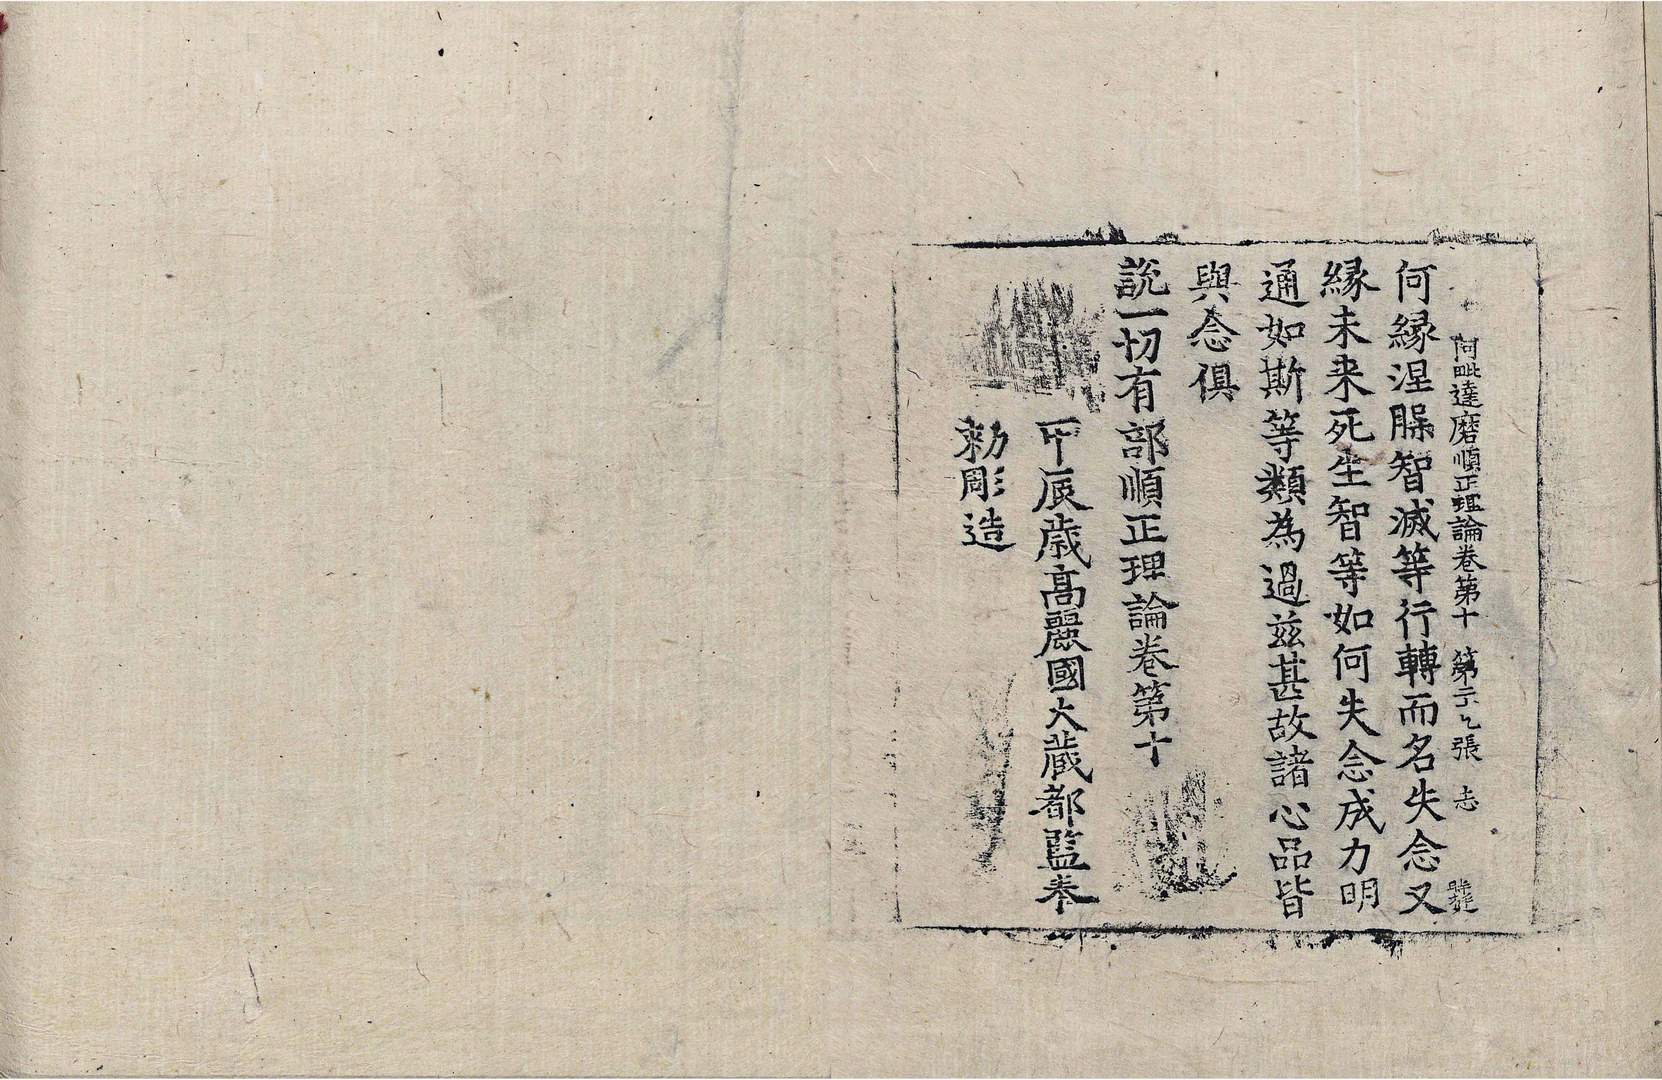 阿毗達磨順正理論卷第十 第二十七張 志
何縁涅槃智滅等行轉而名失念又
縁未来死生智等如何失念成力明
通如斯等類為過兹甚故諸心品皆
與念俱
說一切有部順正理論卷第十
甲辰歲高麗國大藏都監奉
勑彫造